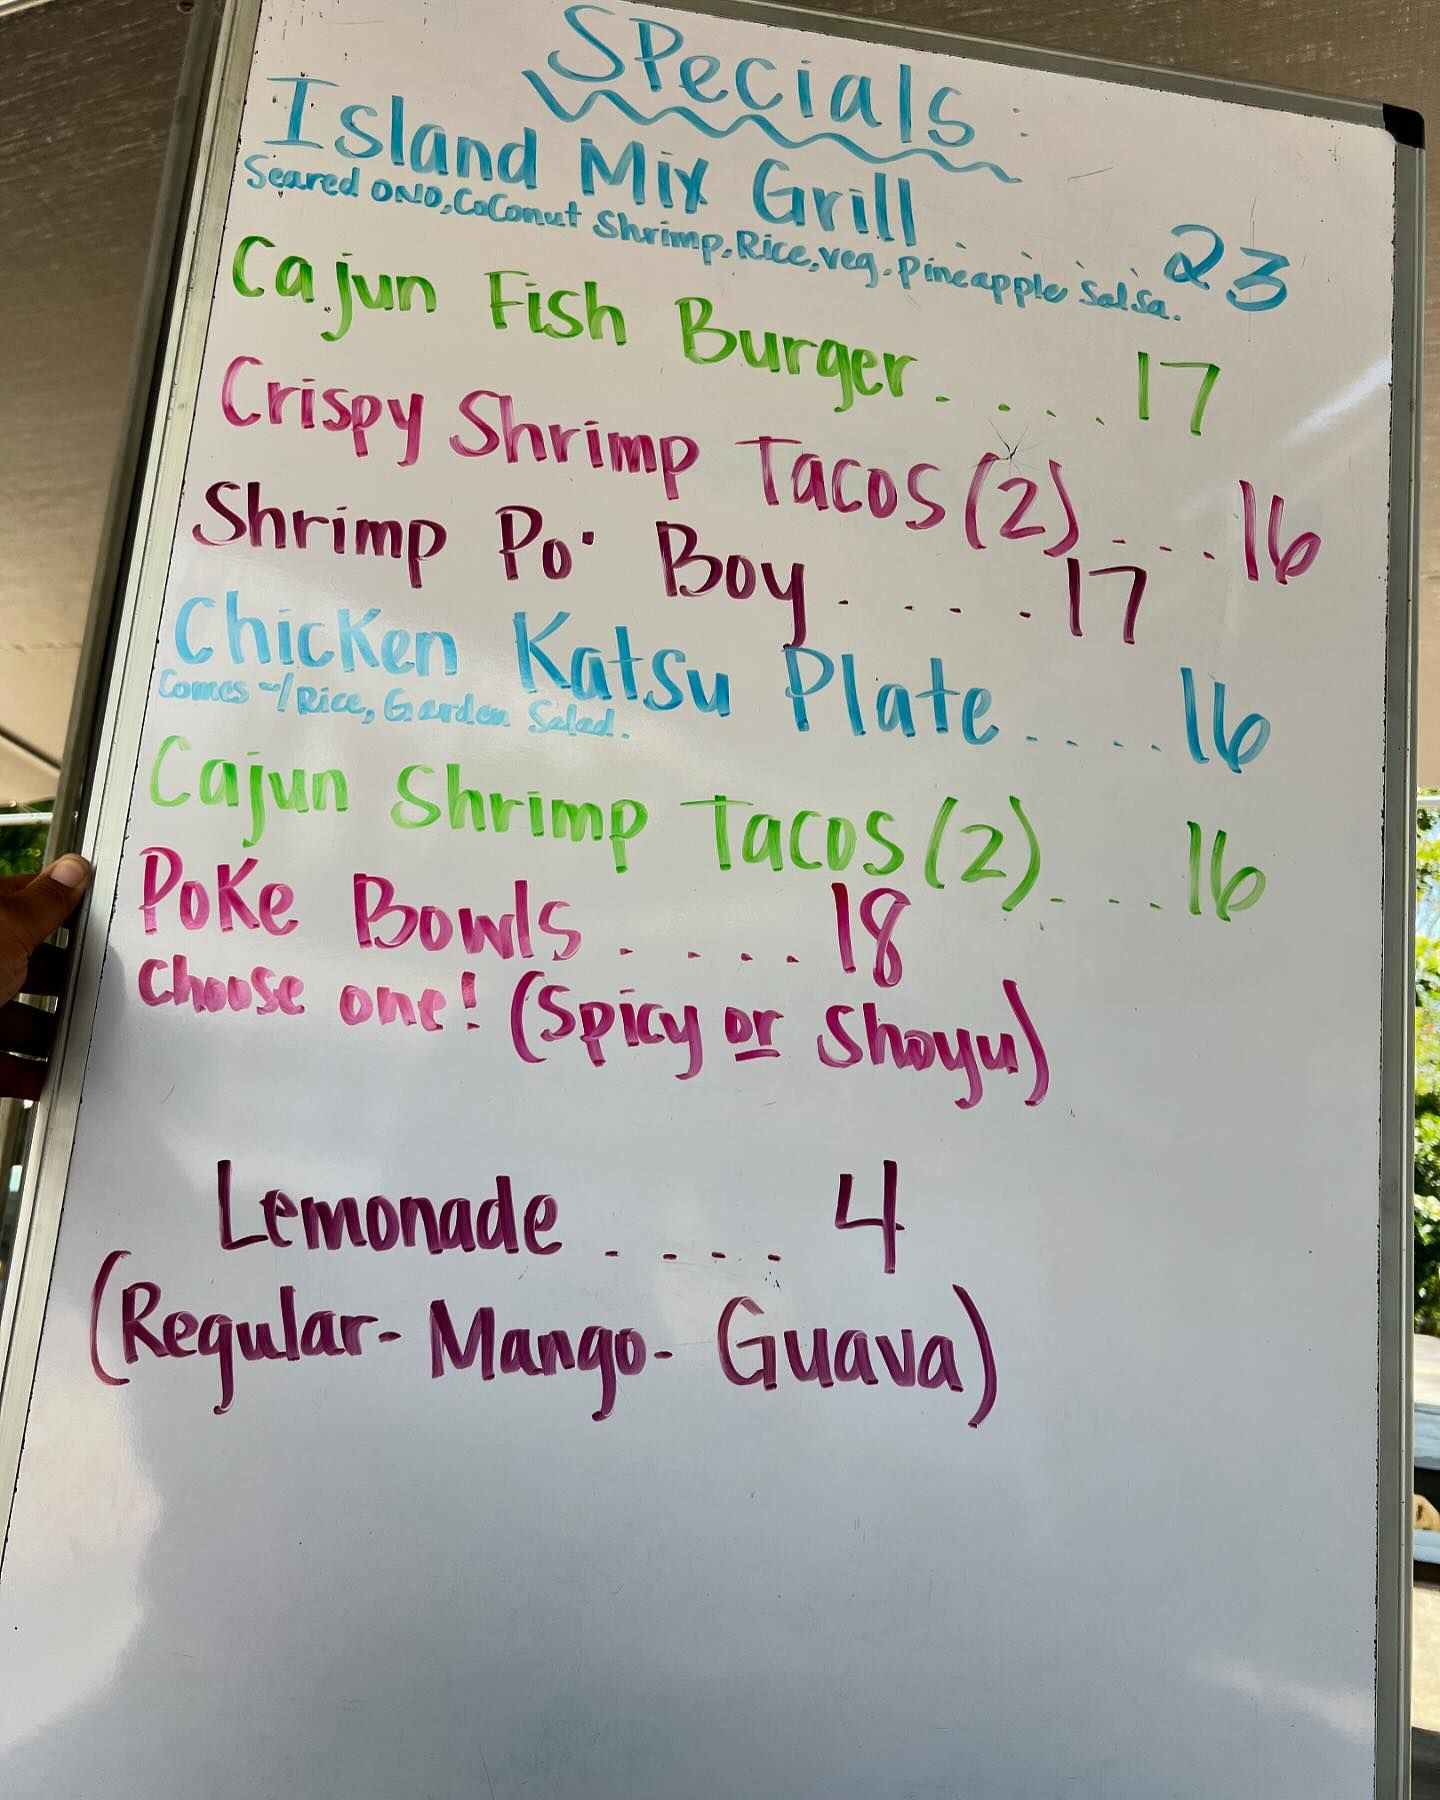 Specials:
Island Mix Grill . . . . . 23
Seared ONO, Coconut Shrimp, Rice, veg, Pineapple Salsa.
Cajun Fish Burger . . . . . 17
Crispy Shrimp Tacos (2) . . . . 16
Shrimp Po' Boy . . . . . 17
Chicken Katsu Plate . . . . . 16
Comes w/ Rice, Garden Salad.
Cajun Shrimp Tacos (2) . . . . 16
Poke Bowls . . . . . 18
Choose one! (Spicy or Shoyu)
Lemonade . . . . . 4
(Regular - Mango - Guava)